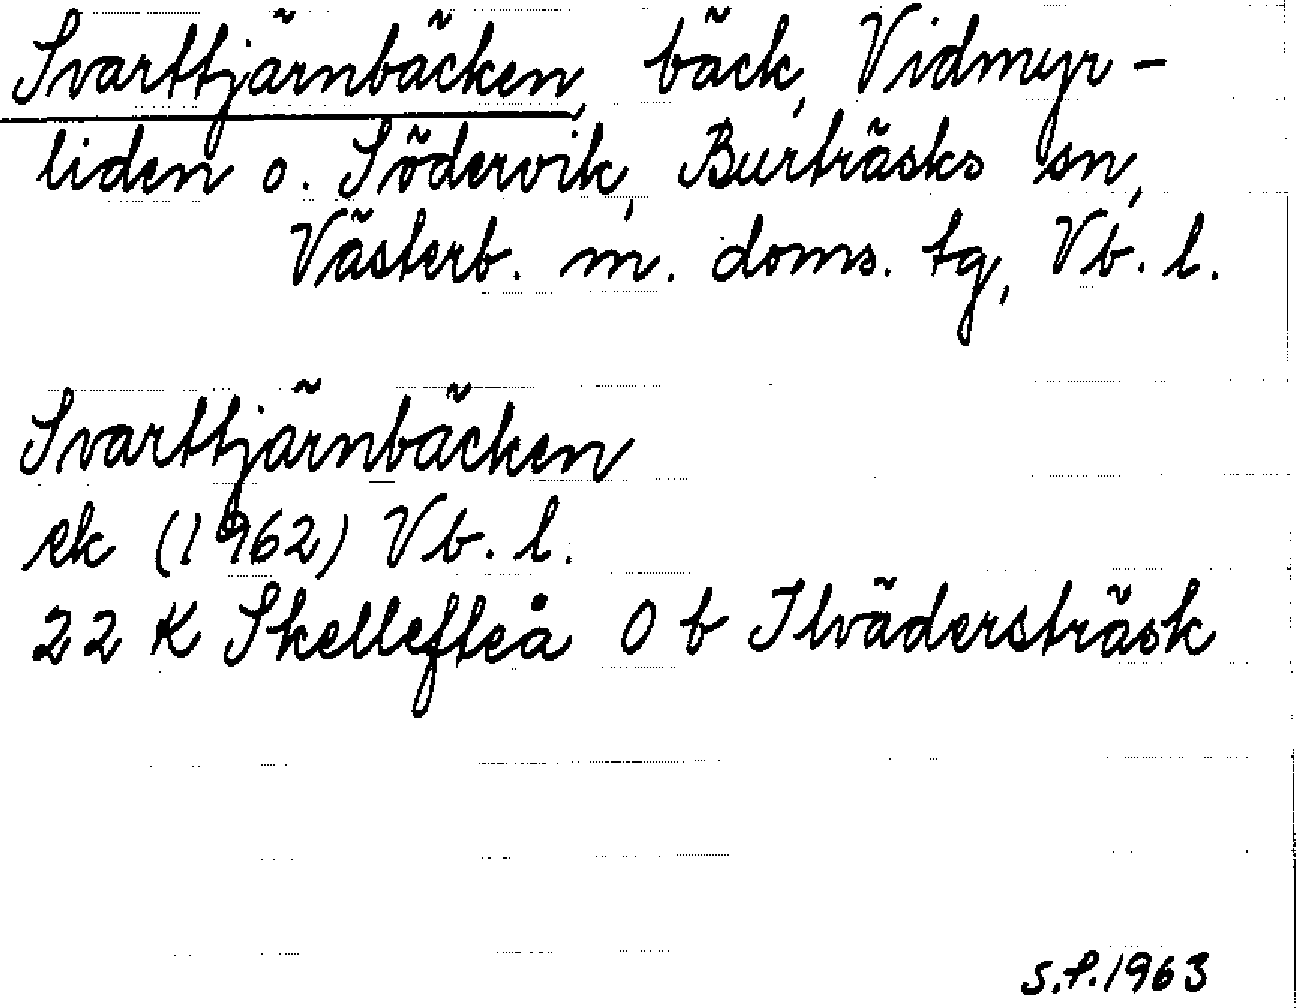 Svarttjärnbäcken, bäck, Vidmyr-
liden o. Södervik, Burträsks sn,
Västerb. m. doms. tg, Vb. l.
Svarttjärnbäcken
ek (1962) Vb. l.
22 K Skellefteå 0 b Ilvädersträsk
S.P. 1963